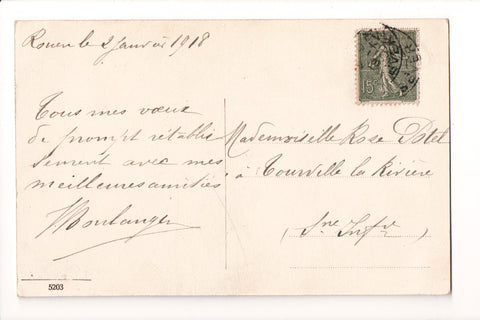 Rouen le 2 Janvier 1918
Tous mes vœux
de prompt rétablis
sement avec mes
meilleures amitiés
Boulanger
Mademoiselle Rose Potel
à Tourville la Rivière
(Sne Infre)
15
5203